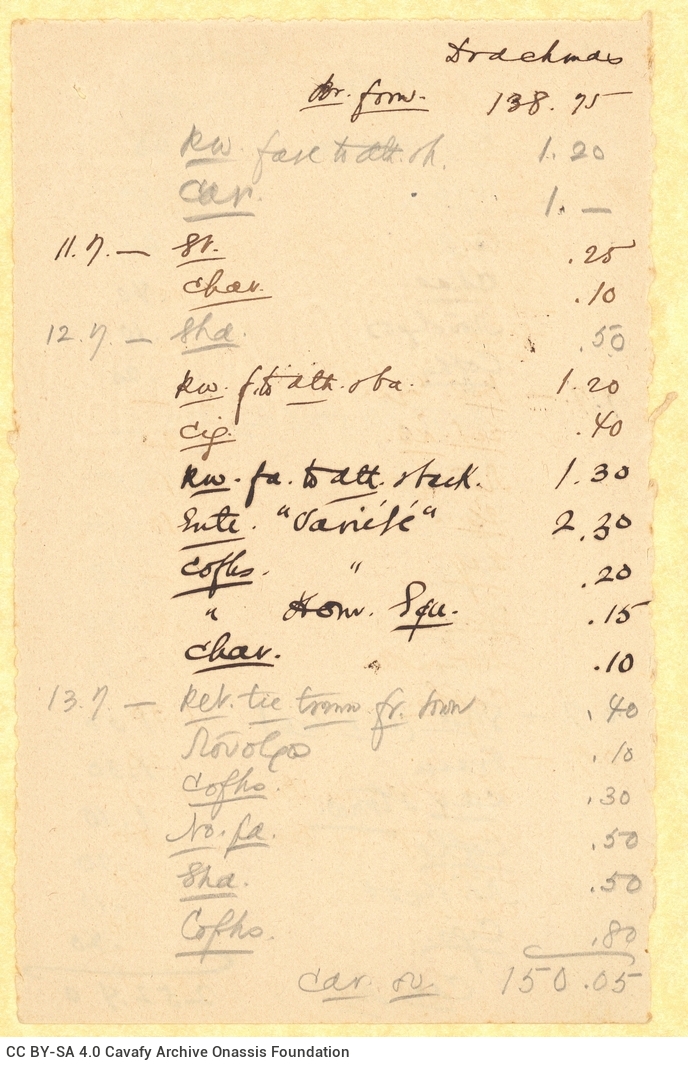 Drachmas
Br. forw. 138.75
Rw. fare to att. sh. 1.20
Car. 1.—
11.7.— St. .25
Char. .10
12.7 — Sha. .50
Rw. f. to ath. sba. 1.20
Cig. .40
Rw. fa. to att. s back. 1.30
Ente. "Variété" 2.30
Cofhs. " .20
" Hom. Squ. .15
Char. .10
13.7.— Ret. tic tramw fr. town .40
.10
Cofhs. .30
No. fa. .50
Sha. .50
Cofhs. .80
Car. ov. 150.05
CC BY-SA 4.0 Cavafy Archive Onassis Foundation